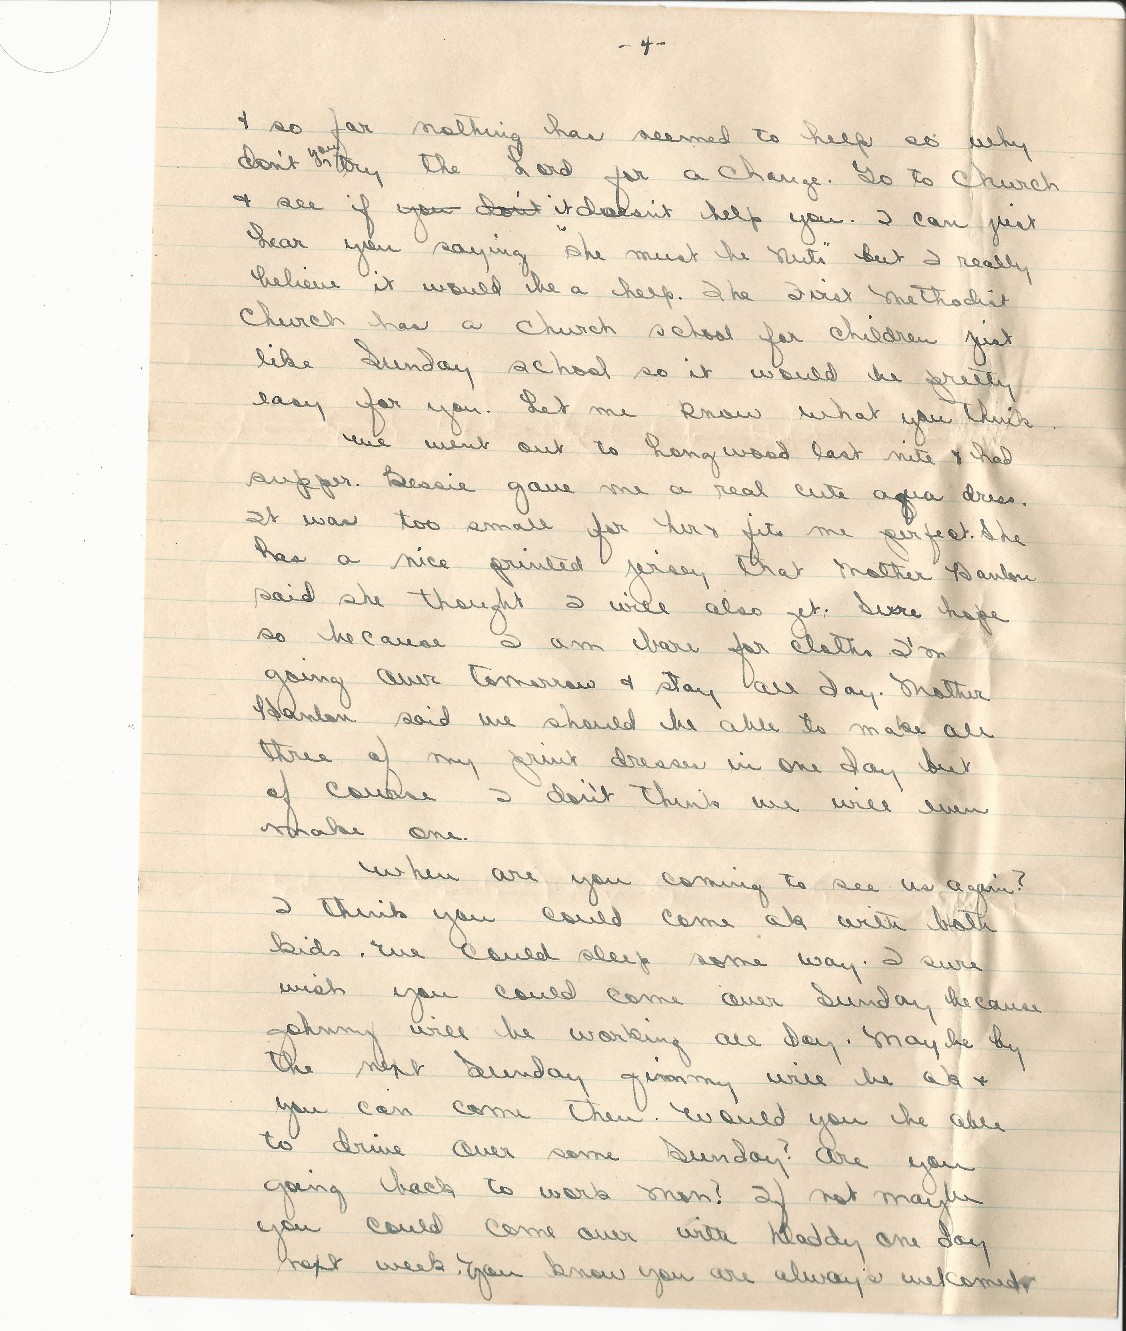 - 4 -
& so far nothing has seemed to help so why
don't you try the Lord for a change. Go to Church
& see if you don't it doesn't help you. I can just
hear you saying "she must be nuts" but I really
believe it would be a help. The First Methodist
Church has a church school for children just
like Sunday school so it would be pretty
easy for you. Let me know what you think.
We went out to Longwood last nite & had
supper. Bessie gave me a real cute aqua dress.
It was too small for her & fits me perfect. She
has a nice printed jersey that Mother Hanlon
said she thought I will also get. Sure hope
so because I am bare for cloths. I'm
going over tomorrow & stay all day. Mother
Hanlon said we should be able to make all
three of my print dresses in one day but
of course I don't think we will even
make one.
When are you coming to see us again?
I think you could come ok with both
kids. We could sleep some way. I sure
wish you could come over Sunday because
Johnny will be working all day. Maybe by
the next Sunday Jimmy will be ok &
you can come then. Would you be able
to drive over some Sunday? Are you
going back to work Mon? If not maybe
you could come over with Daddy one day
next week. You know you are always welcomed